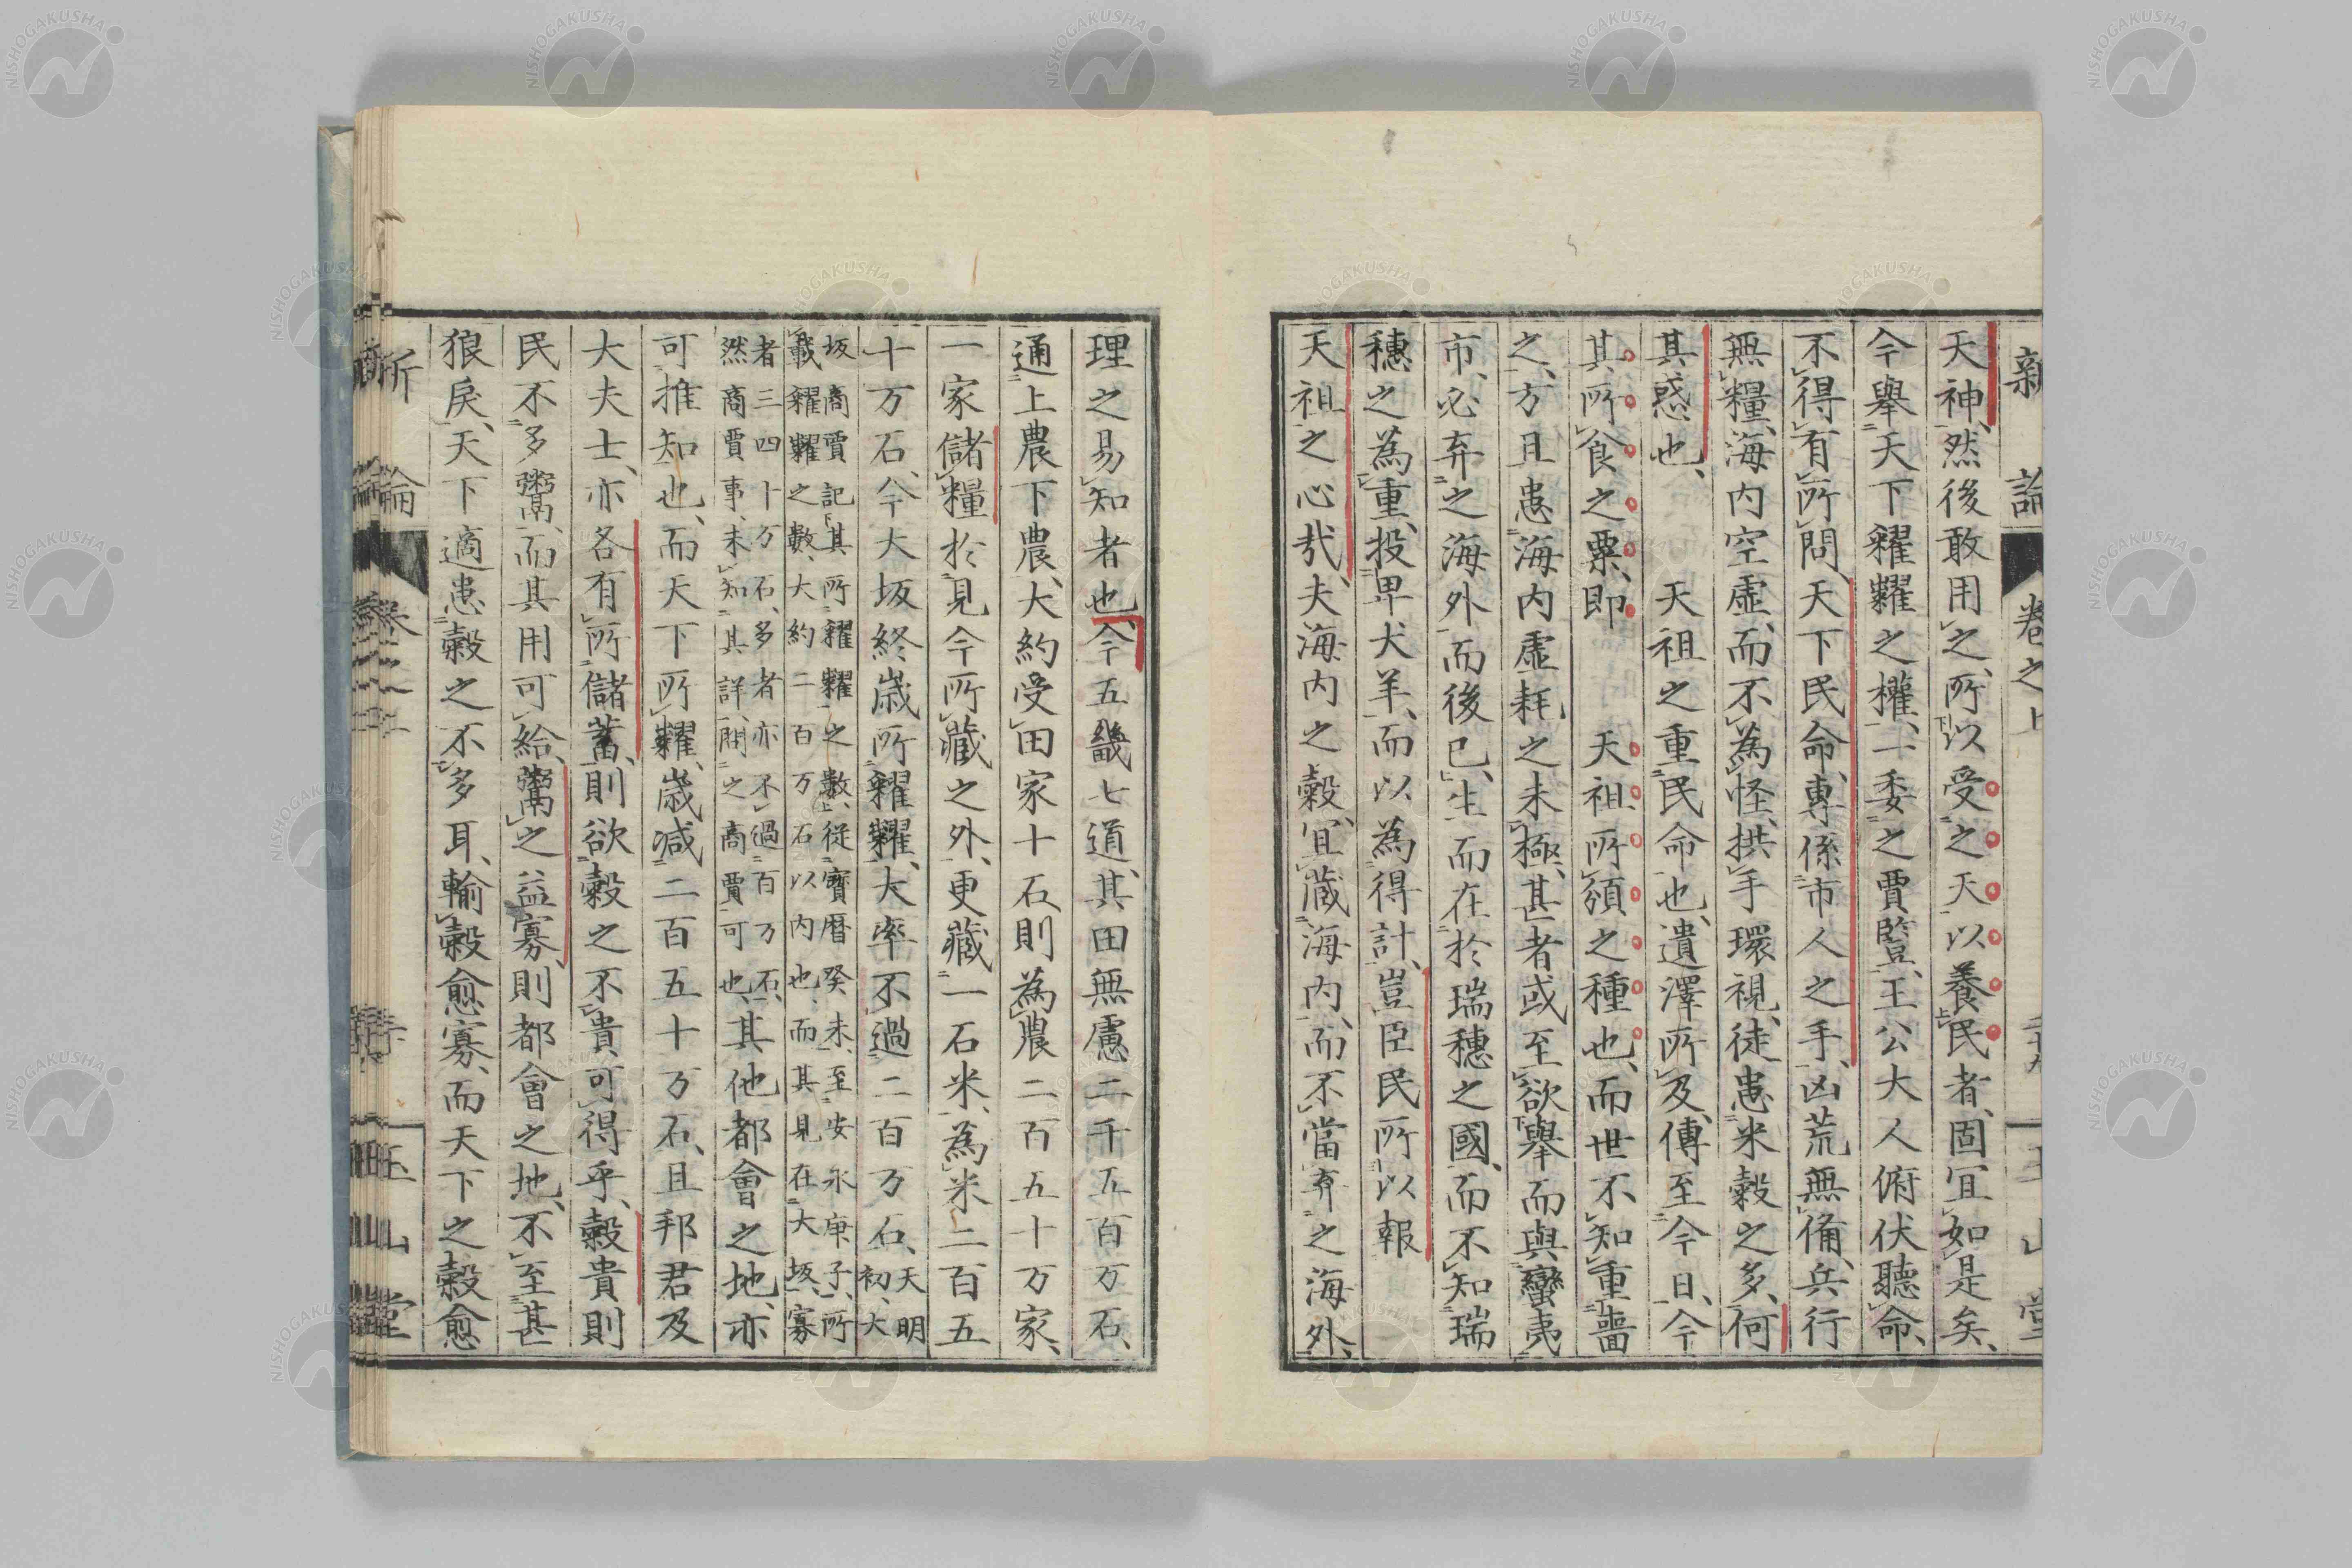 新論 卷之上 二十九 玉山堂
天神、然後敢用之、所以受之天以養民者、固宜如是矣、
今舉天下糴糶之權、一委之賈豎、王公大人俯伏聽命、
不得有所問、天下民命、專係市人之手、凶荒無備、兵行
無糧、海內空虛、而不為怪、拱手環視、徒患米穀之多、何
其惑也、天祖之重民命也、遺澤所及、傳至今日、今
其所食之粟、即天祖所頒之種也、而世不知重嗇
之、方且患海内虛耗之未極、甚者或至欲舉而與蠻夷
市、必弃之海外而後已、生而在於瑞穗之國、而不知瑞
穗之為重、投畀犬羊、而以為得計、豈臣民所以報
天祖之心哉、夫海内之穀、宜藏海内、而不當弃之海外、
理之易知者也、今五畿七道、其田無慮二千五百万石、
通上農下農、大約受田家十石、則為農二百五十万家、
一家儲糧於見今所藏之外、更藏一石米、為米二百五
十万石、今大坂終歲所糴糶、大率不過二百万石、天明初、大
坂商賈記其所糴糶之數、從寶曆癸未、至安永庚子、所
載糴糶之數、大約二百万石以內也、而其見在大坂、寡
者三四十万石、多者亦不過百万石、
然商賈事、未知其詳、問之商賈可也、其他都會之地、亦
可推知也、而天下所糶、歲減二百五十万石、且邦君及
大夫士、亦各有所儲蓄、則欲穀之不貴、可得乎、穀貴則
民不多鬻、而其用可給、鬻之益寡、則都會之地、不至甚
狼戾、天下適患穀之不多耳、輸穀愈寡、而天下之穀愈